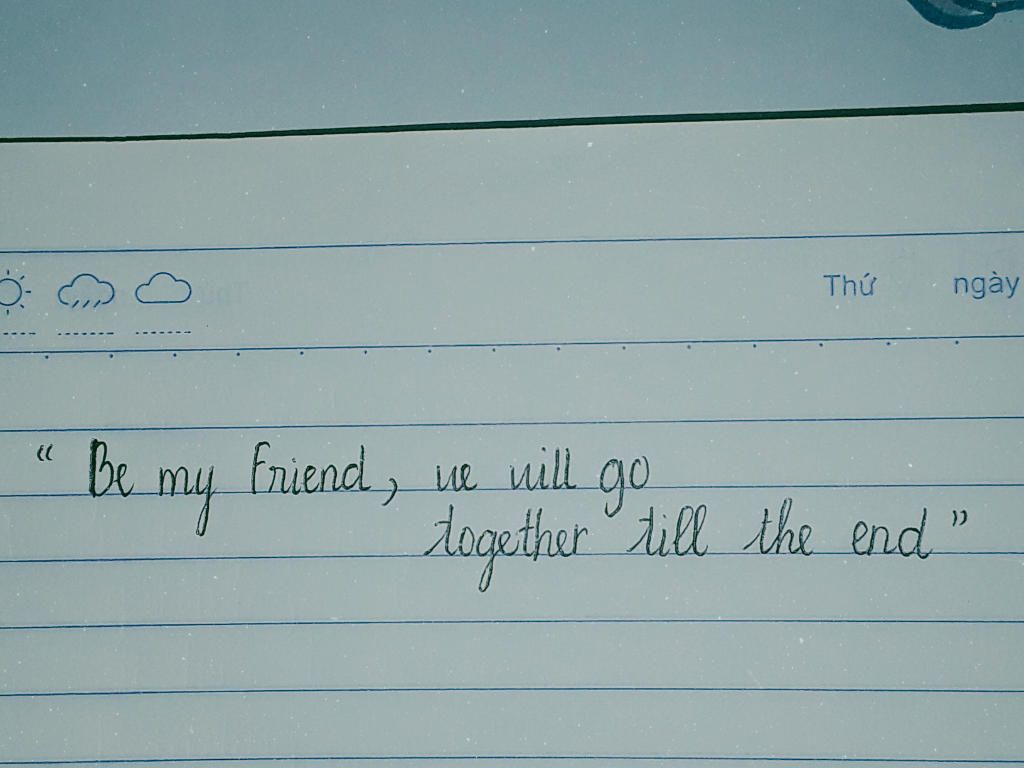 Thứ ngày
“ Be my friend, we will go
together till the end ”